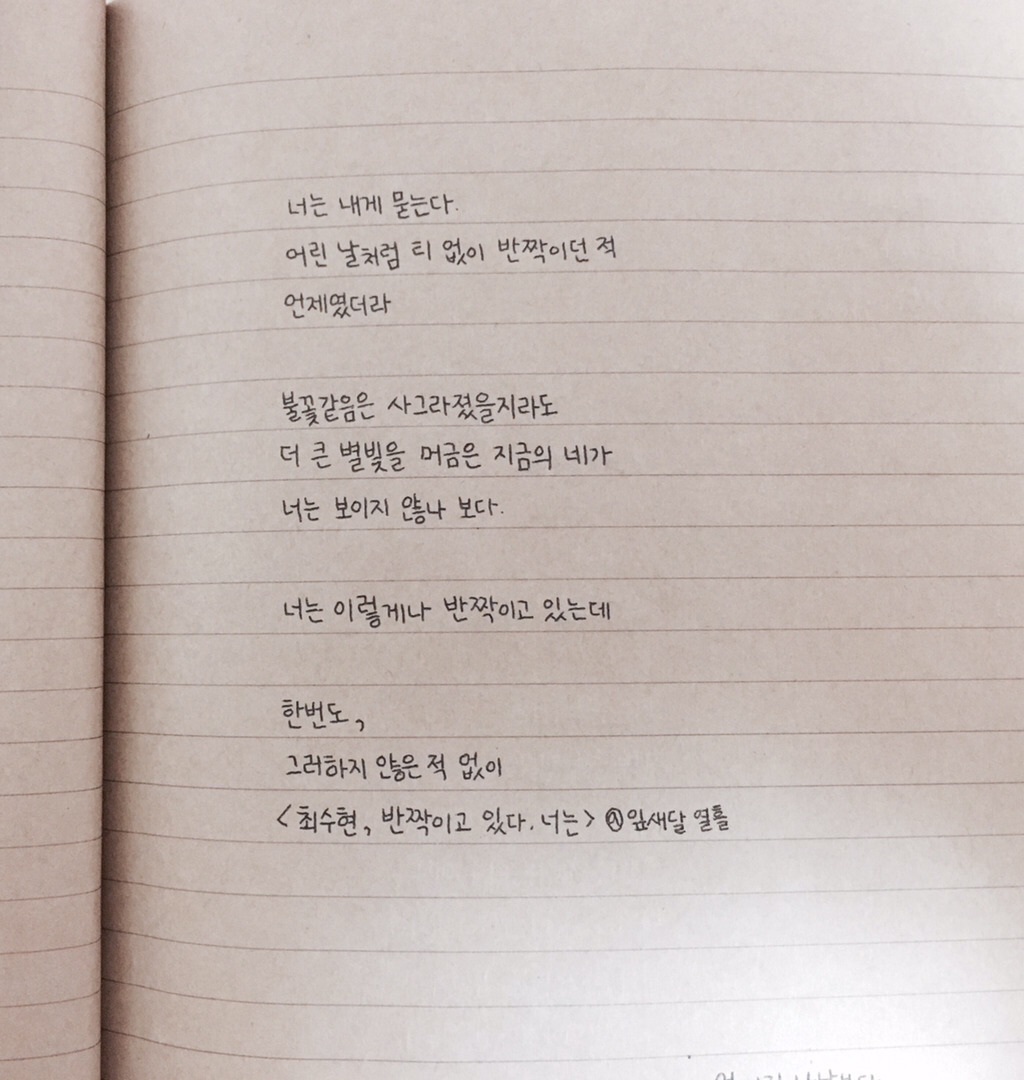 너는 내게 묻는다.
어린 날처럼 티 없이 반짝이던 적
언제였더라
불꽃같음은 사그라졌을지라도
더 큰 별빛을 머금은 지금의 네가
너는 보이지 않나 보다.
너는 이렇게나 반짝이고 있는데
한번도,
그러하지 않은 적 없이
<최수현, 반짝이고 있다. 너는> ㉦잎새달 열흘